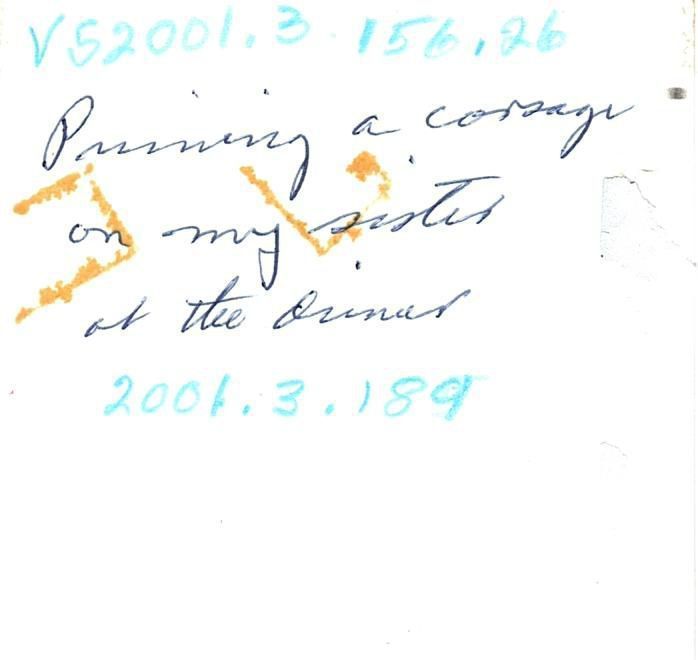 VS2001.3.156.26
Pinning a corsage
on my sister
at the dinner
2001.3.189